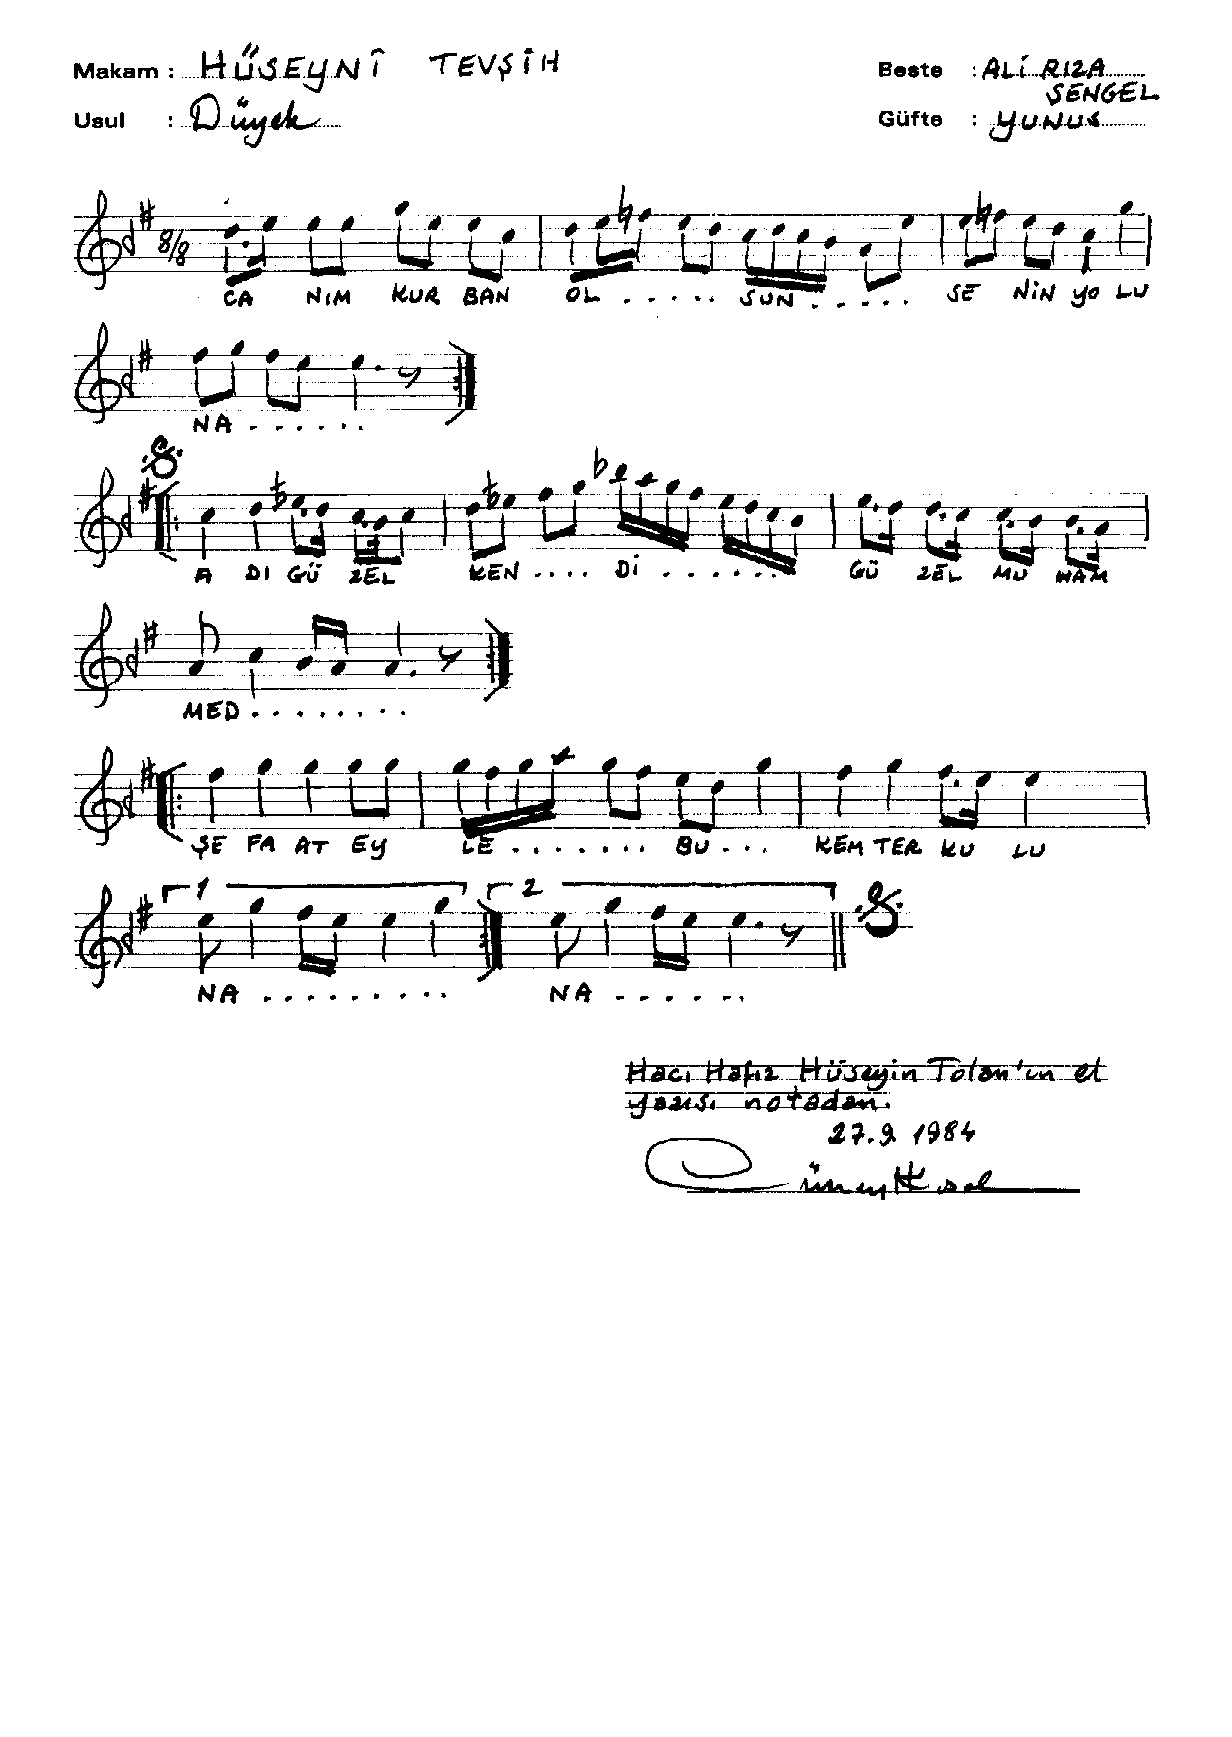 Makam : HÜSEYNÎ TEVŞİH Beste : ALİ RIZA
ŞENGEL
Usul : Düyek Güfte : YUNUS
8/8
CA NIM KUR BAN OL . . . . . SUN . . . . . SE NİN YO LU
NA . . . . . .
A DI GÜ ZEL KEN . . . . Dİ . . . . . . GÜ ZEL MU HAM
MED . . . . . . . .
ŞE FA AT EY LE . . . . . . . BU . . . KEM TER KU LU
1 2
NA . . . . . . . . . NA . . . . . .
Hacı Hafız Hüseyin Tolan'ın el
yazısı notadan.
27.9 1984